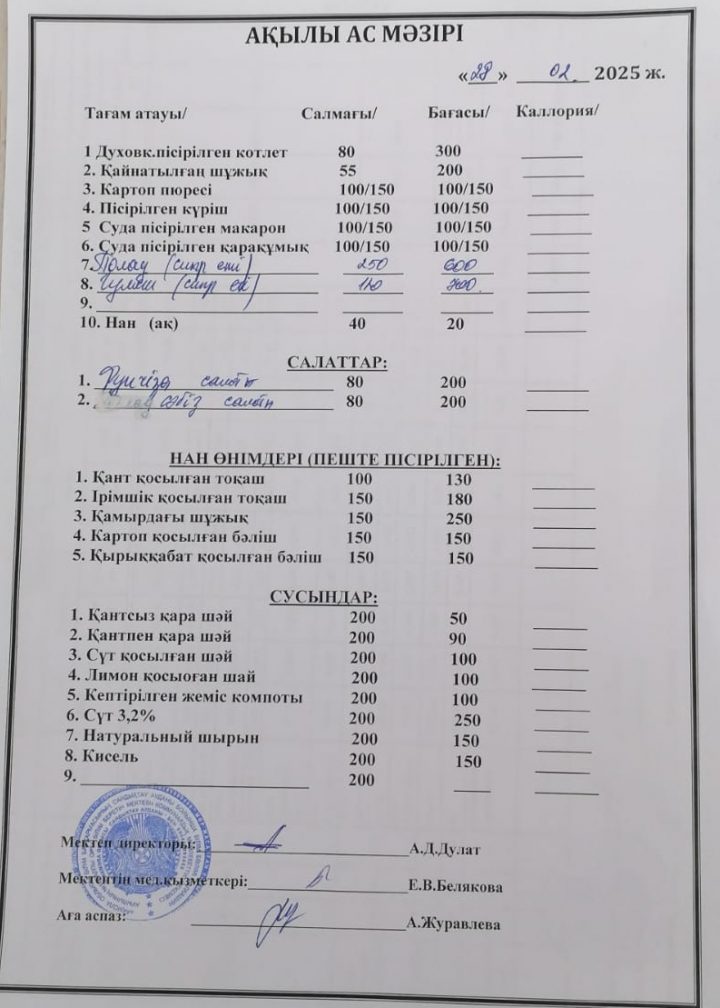 АҚЫЛЫ АС МӘЗІРІ
«28» 02 2025 ж.
Тағам атауы/ Салмағы/ Бағасы/ Каллория/
1 Духовк.пісірілген котлет 80 300
2. Қайнатылған шұжық 55 200
3. Картоп пюресі 100/150 100/150
4. Пісірілген күріш 100/150 100/150
5 Суда пісірілген макарон 100/150 100/150
6. Суда пісірілген қарақұмық 100/150 100/150
7. Полау (сиыр еті) 250 600
8. Гуляш (сиыр еті) 110
9.
10. Нан (ақ) 40 20
САЛАТТАР:
1. Фунчіза салаты 80 200
2. сәбіз салаты 80 200
НАН ӨНІМДЕРІ (ПЕШТЕ ПІСІРІЛГЕН):
1. Қант қосылған тоқаш 100 130
2. Ірімшік қосылған тоқаш 150 180
3. Қамырдағы шұжық 150 250
4. Картоп қосылған бәліш 150 150
5. Қырыққабат қосылған бәліш 150 150
СУСЫНДАР:
1. Қантсыз қара шәй 200 50
2. Қантпен қара шәй 200 90
3. Сүт қосылған шәй 200 100
4. Лимон қосыоған шай 200 100
5. Кептірілген жеміс компоты 200 100
6. Сүт 3,2% 200 250
7. Натуральный шырын 200 150
8. Кисель 200 150
9. 200
Мектеп директоры: А.Д.Дулат
Мектептің мед.қызметкері: Е.В.Белякова
Аға аспаз: А.Журавлева